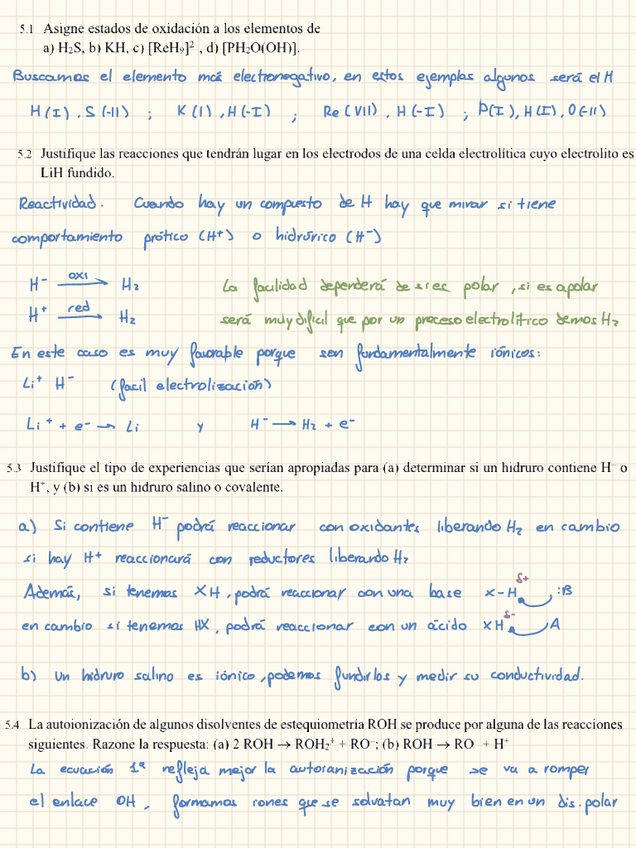 5.1 Asigne estados de oxidación a los elementos de
a) H₂S, b) KH, c) [ReH₉]²⁻, d) [PH₂O(OH)].
Buscamos el elemento más electronegativo, en estos ejemplos algunos será el H
H(I), S(-II) ; K(I), H(-I) ; Re(VII), H(-I) ; P(I), H(I), O(-II)
5.2 Justifique las reacciones que tendrán lugar en los electrodos de una celda electrolítica cuyo electrolito es
LiH fundido.
Reactividad. Cuando hay un compuesto de H hay que mirar si tiene
comportamiento prótico (H⁺) o hidrúrico (H⁻)
H⁻ —oxi→ H₂ La facilidad dependerá de si es polar, si es apolar
H⁺ —red→ H₂ será muy dificil que por un proceso electrolítico demos H₂
En este caso es muy favorable porque son fundamentalmente iónicos:
Li⁺ H⁻ (facil electrolización)
Li⁺ + e⁻ → Li y H⁻ → H₂ + e⁻
5.3 Justifique el tipo de experiencias que serían apropiadas para (a) determinar si un hidruro contiene H⁻ o
H⁺, y (b) si es un hidruro salino o covalente.
a) Si contiene H⁻ podrá reaccionar con oxidantes liberando H₂ en cambio
si hay H⁺ reaccionará con reductores liberando H₂
Además, si tenemos XH, podrá reaccionar con una base X-H δ+ :B
en cambio si tenemos HX, podrá reaccionar con un ácido XH δ- A
b) Un hidruro salino es iónico, podemos fundirlos y medir su conductividad.
5.4 La autoionización de algunos disolventes de estequiometría ROH se produce por alguna de las reacciones
siguientes. Razone la respuesta: (a) 2 ROH → ROH₂⁺ + RO⁻; (b) ROH → RO⁻ + H⁺
La ecuación 1ª refleja mejor la autoionización porque se va a romper
el enlace OH, formamos iones que se solvatan muy bien en un dis. polar